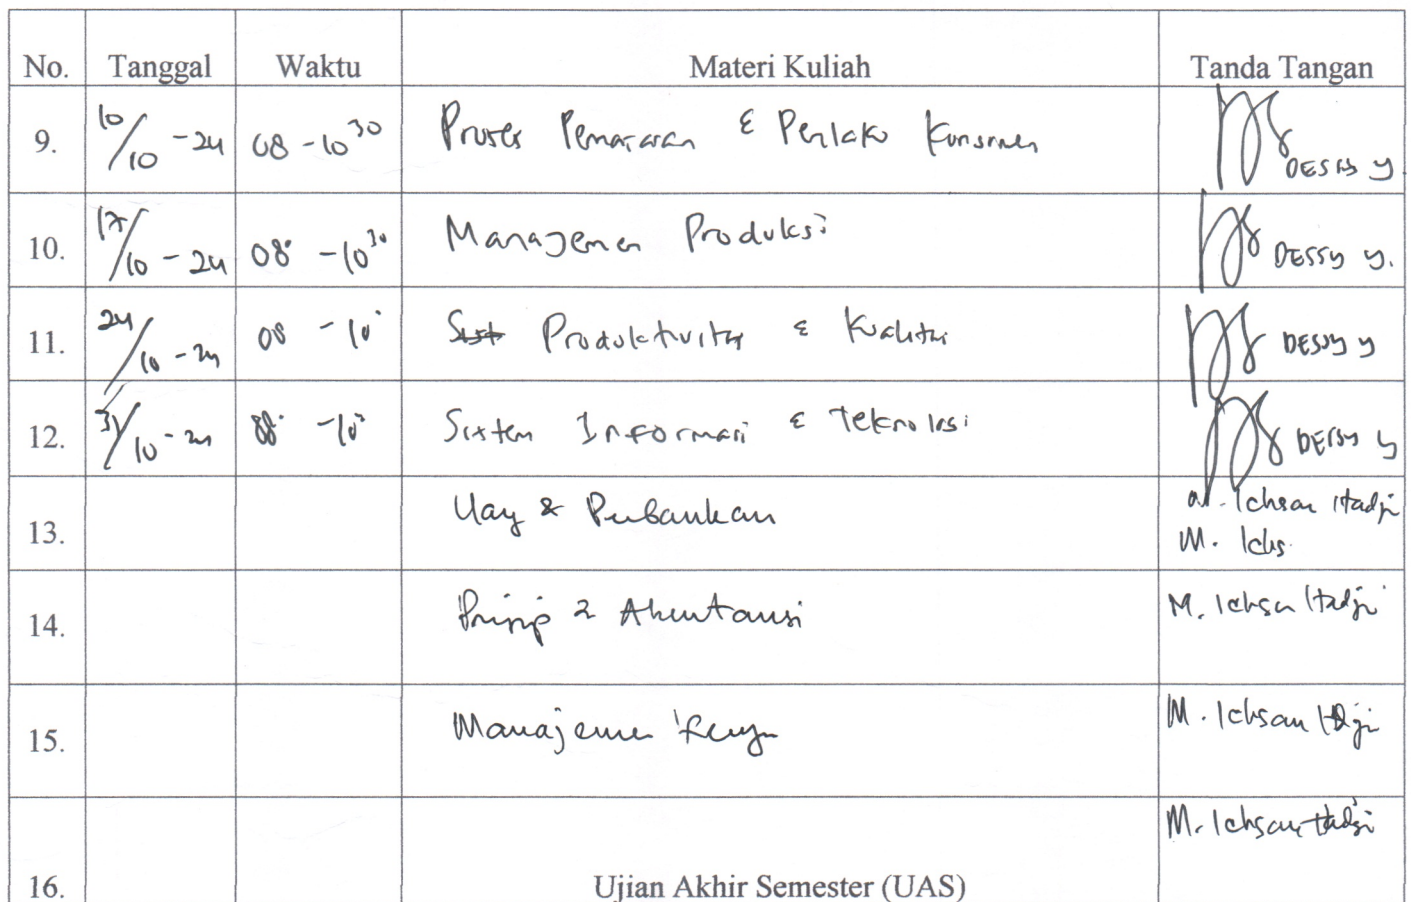 No. Tanggal Waktu Materi Kuliah Tanda Tangan
9. 10/10 - 24 08 - 10 30 Proses Pemasaran & Perilaku Konsumen DESSY Y.
10. 17/10 - 24 08 - 10 30 Manajemen Produksi DESSY Y.
11. 24/10 - 24 08 - 10 Produktivitas & Kualitas DESSY Y
12. 31/10 - 24 08 - 10 Sistem Informasi & Teknologi DESSY Y
13. Uang & Perbankan M. Ichsan Hadji
M. Ichs.
14. Prinsip 2 Akuntansi M. Ichsan Hadji
15. Manajemen M. Ichsan Hadji
M. Ichsan Hadji
16. Ujian Akhir Semester (UAS)